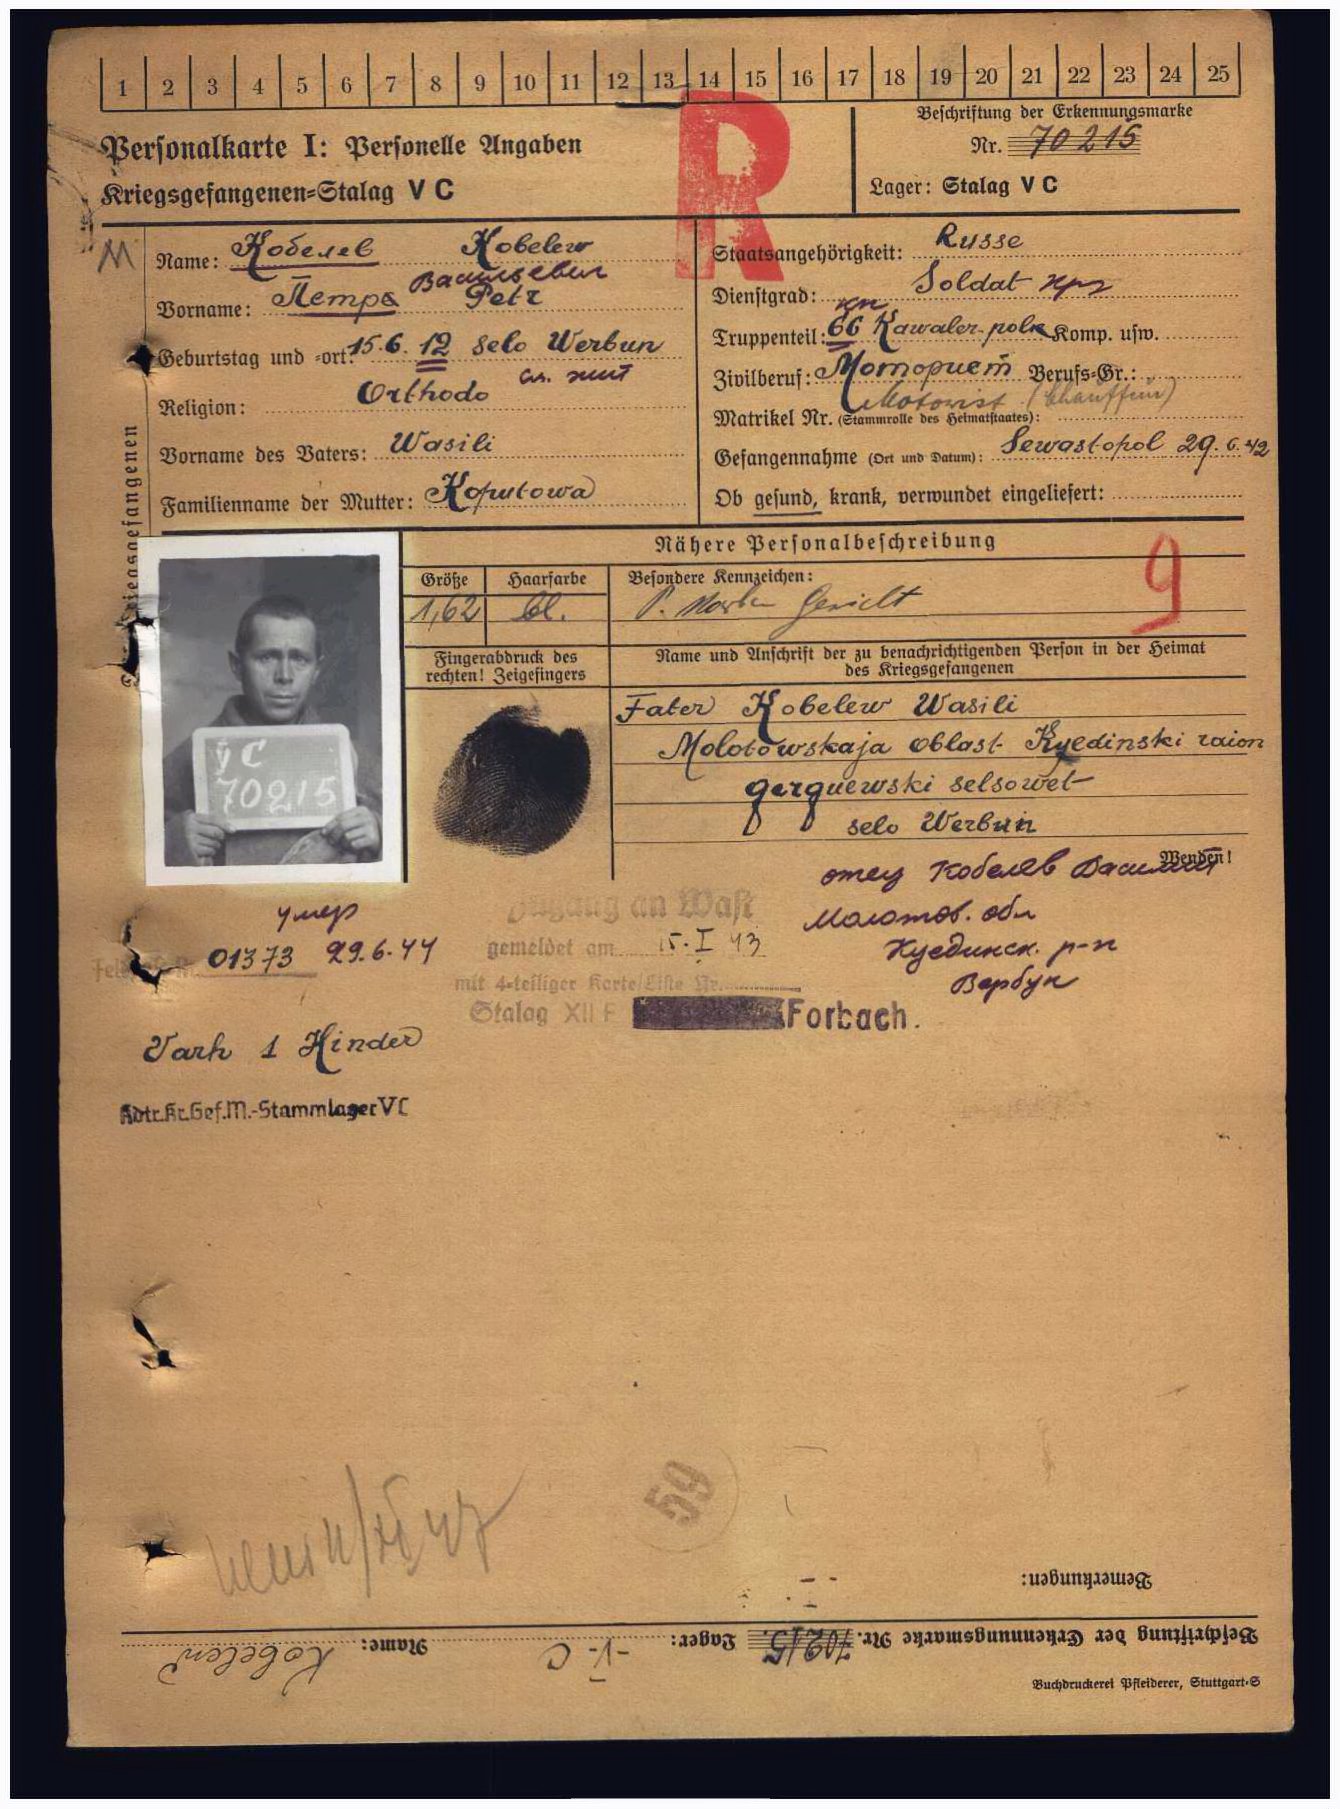 1 2 3 4 5 6 7 8 9 10 11 12 13 14 15 16 17 18 19 20 21 22 23 24 25
Personalkarte I: Personelle Angaben
Kriegsgefangenen-Stalag V C
R
Beschriftung der Erkennungsmarke
Nr. 70215
Lager: Stalag V C
M
Name: Кобелев Kobelew
Васильевич
Vorname: Петр Petr
Geburtstag und -ort: 15.6.12 selo Werbun
Religion: Orthodo
Vorname des Vaters: Wasili
Familienname der Mutter: Koputowa
Staatsangehörigkeit: Russe
Dienstgrad: Soldat кр
кп
Truppenteil: 66 Kawaler. polk Komp. usw.
Zivilberuf: Моторист Berufs-Gr.:
Motorist (Chauffeur)
Matrikel Nr. (Stammrolle des Heimatstaates):
Gefangennahme (Ort und Datum): Sewastopol 29.6.42
Ob gesund, krank, verwundet eingeliefert:
Nähere Personalbeschreibung
9
Größe Haarfarbe Besondere Kennzeichen:
1,62 bl.
Fingerabdruck des
rechten! Zeigefingers
Name und Anschrift der zu benachrichtigenden Person in der Heimat
des Kriegsgefangenen
V C
70215
Fater Kobelew Wasili
Molotowskaja oblast Kuedinski raion
gerguewski selsowet
selo Werbun
Wenden!
отец Кобелев Василий
Молотов. обл
Куединск. р-н
Вербун
умер
01373 29.6.44
Zugang an Wast
gemeldet am 15.I 43
mit 4-teiliger Karte/Liste Nr.
Stalag XII F Forbach.
Varh 1 Hinder
Kdtr.Kr.Gef.M.-Stammlager V C
59
Bemerkungen:
Beschriftung der Erkennungsmarke Nr. 70215. Lager: V-C Name: Kobelew
Buchdruckerei Pfleiderer, Stuttgart-S